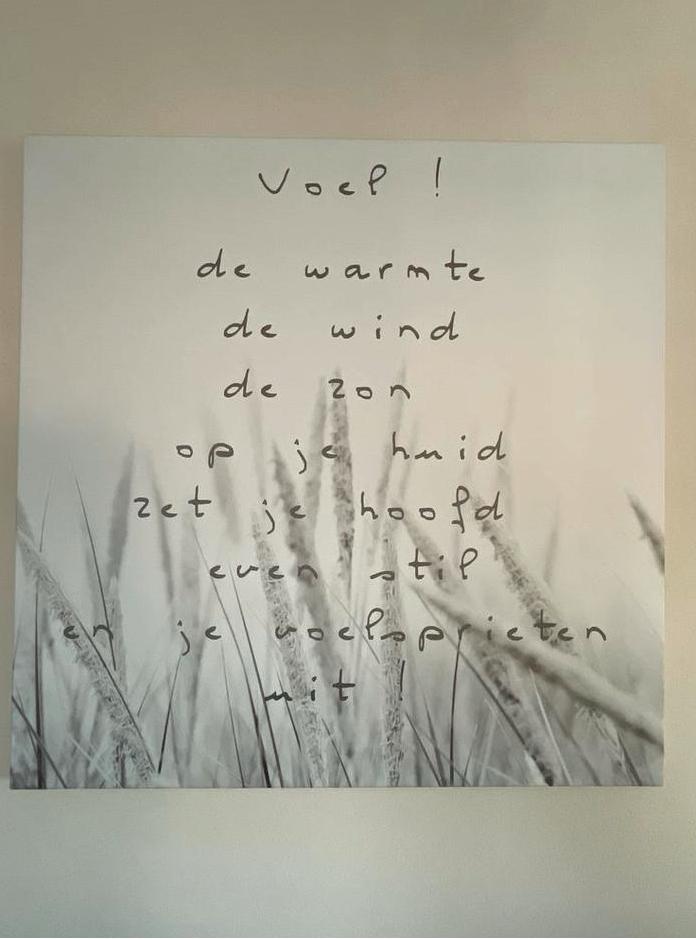 Voel !
de warmte
de wind
de zon
op je huid
zet je hoofd
even stil
en je voelsprieten
uit !